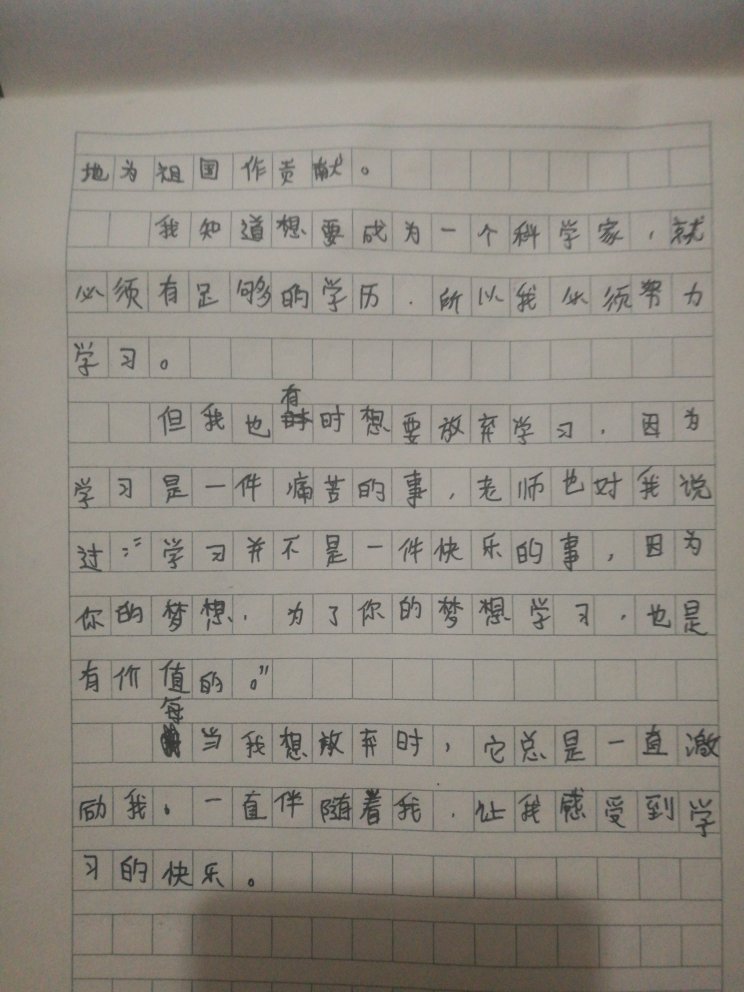 地为祖国作贡献。
我知道想要成为一个科学家，就
必须有足够的学历．所以我必须努力
学习。
但我也有时想要放弃学习．因为
学习是一件痛苦的事，老师也对我说
过：“学习并不是一件快乐的事，因为
你的梦想．为了你的梦想学习．也是
有价值的。”
每当我想放弃时，它总是一直激
励我。一直伴随着我．让我感受到学
习的快乐。